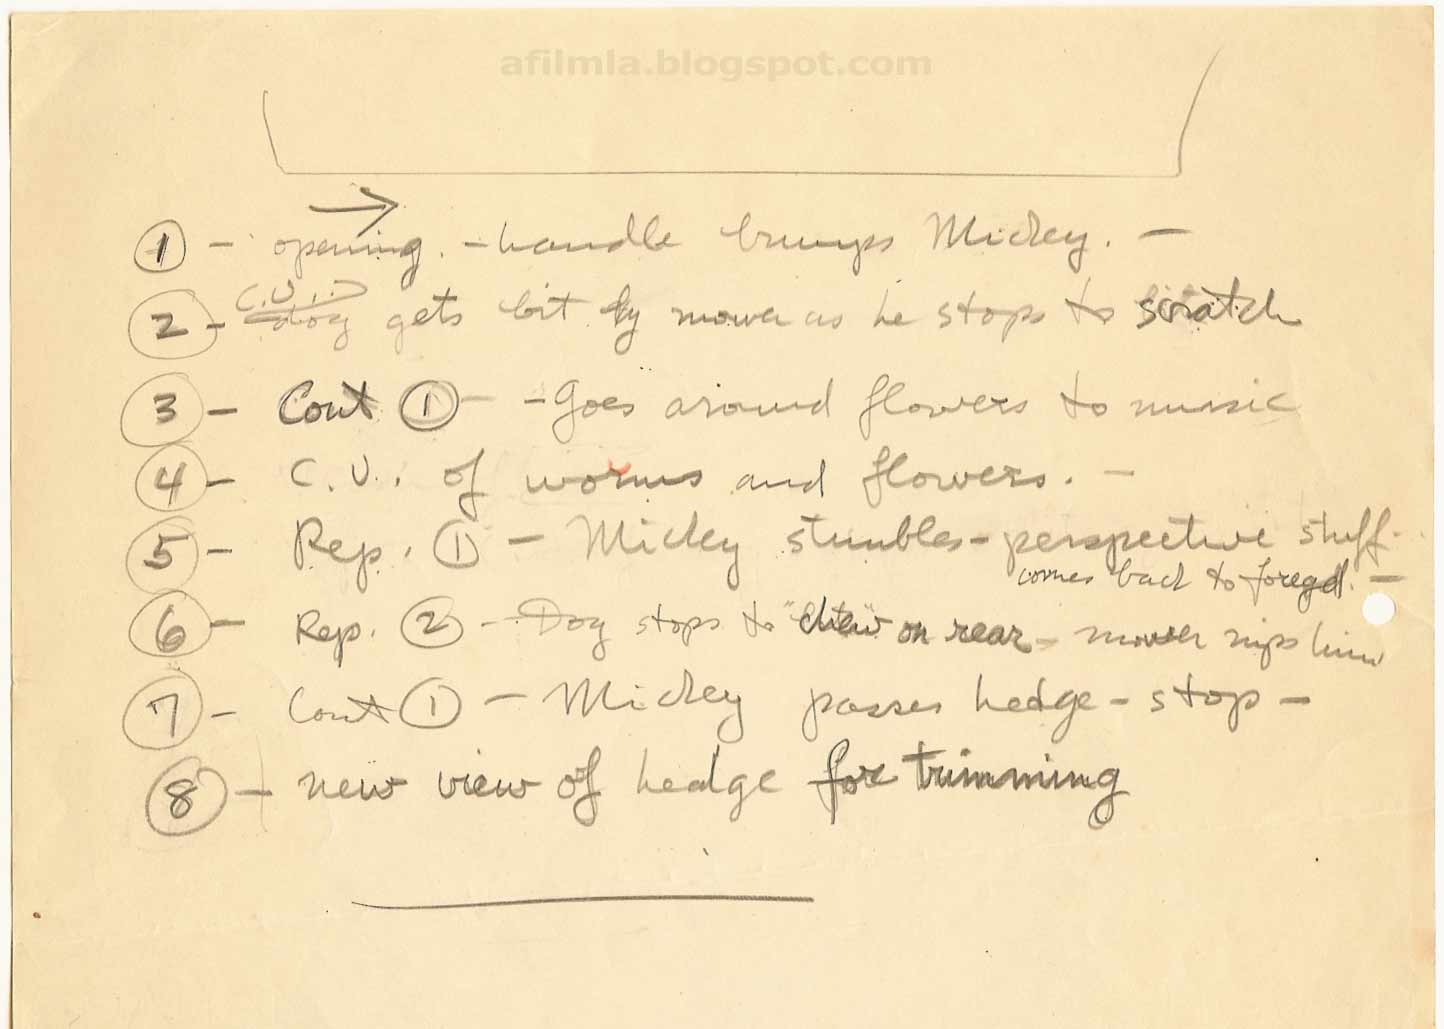 afilmla.blogspot.com
① - opening. - handle bumps Mickey. -
C.U.
② - dog gets bit by mower as he stops to scratch
③ - Cont ① - - Goes around flowers to music
④ - C.U. of worms and flowers. -
⑤ - Rep. ① - Mickey stumbles - perspective stuff -
comes back to foregd. -
⑥ - Rep. ② - Dog stops to "chew" on rear - mower nips him
⑦ - Cont ① - Mickey passes hedge - stop -
⑧ - new view of hedge for trimming